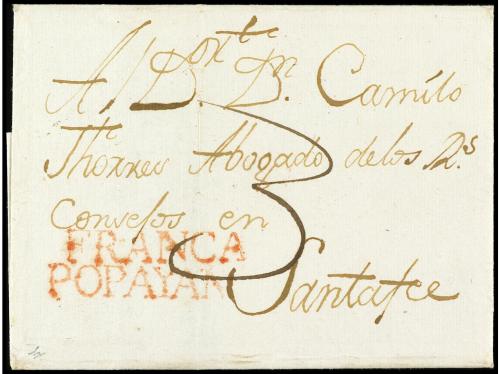 A / D.or D.n Camílo
Thorres Abogado delos R.s
Consejos en
3
FRANCA
POPAYAN
Santafee